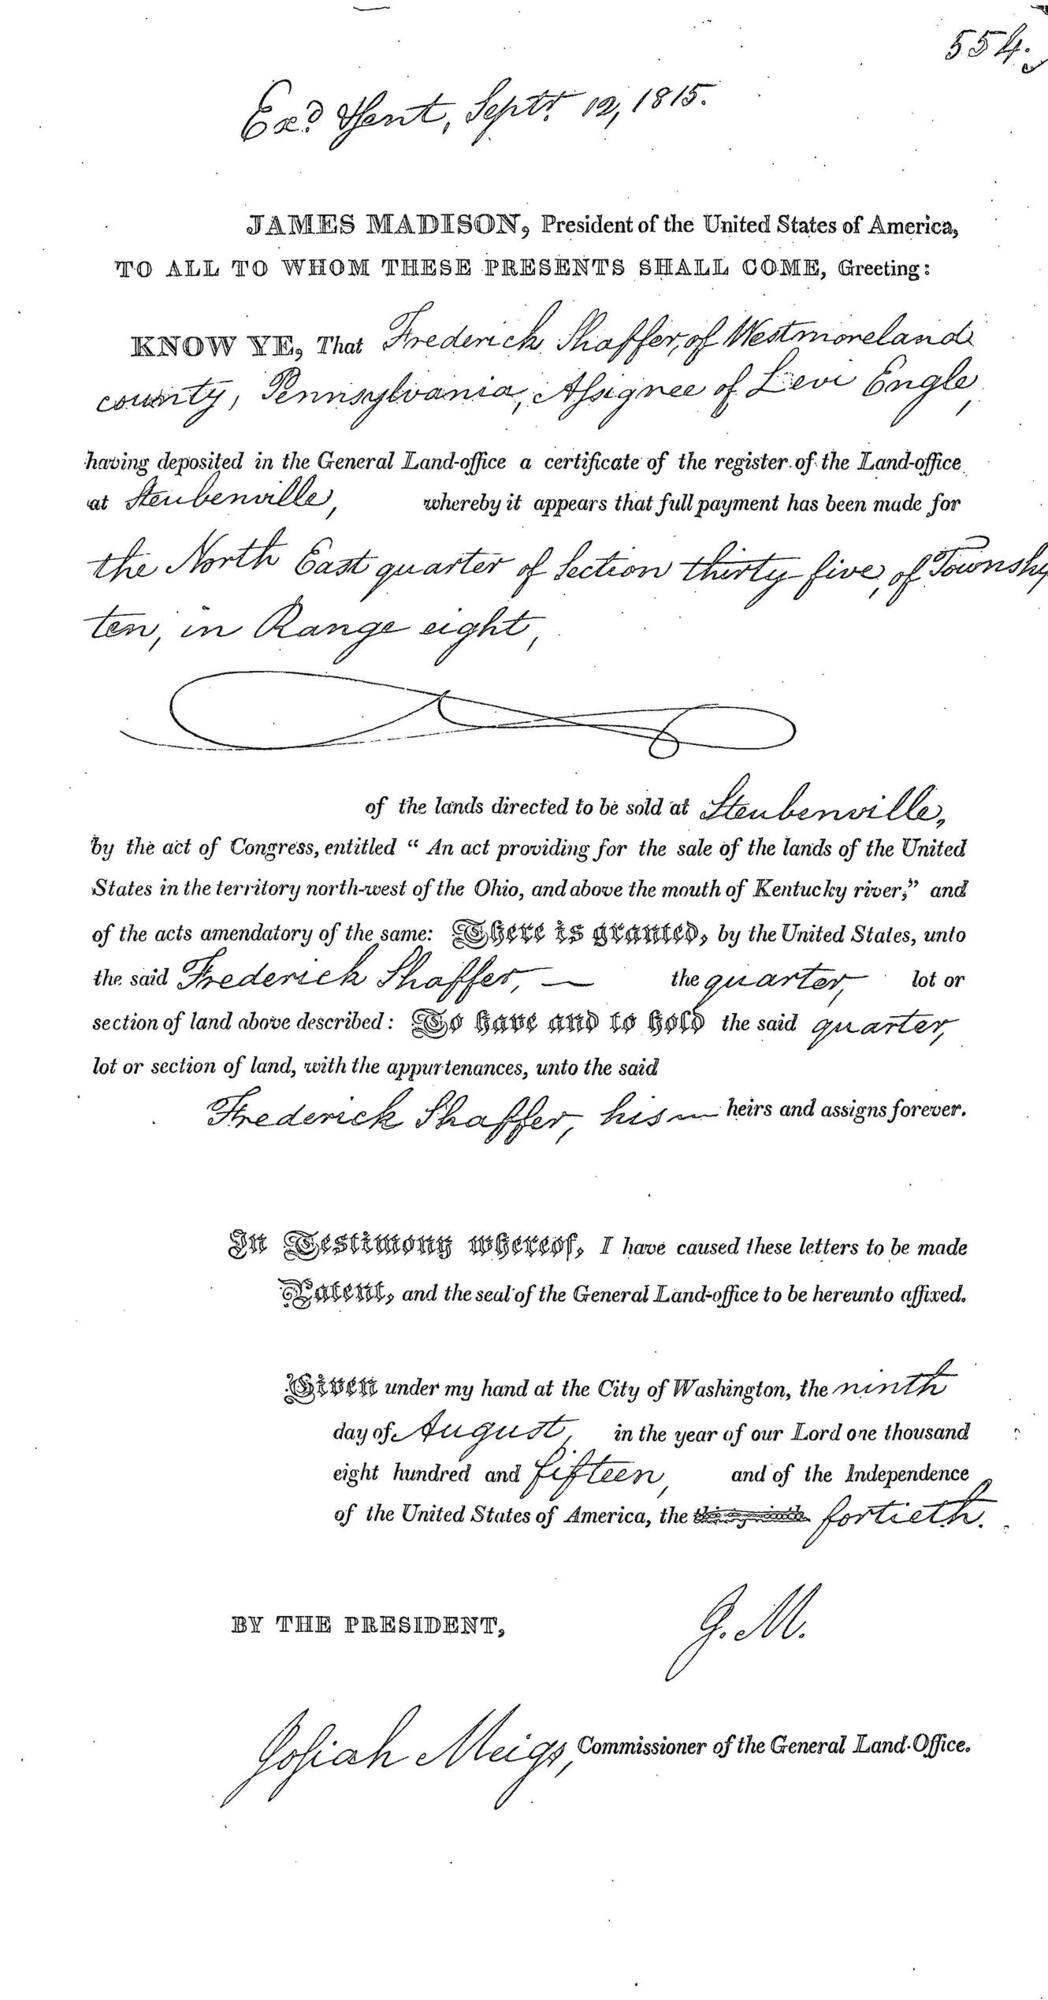 554.
Exd. & Sent, Septr. 12, 1815.
JAMES MADISON, President of the United States of America,
TO ALL TO WHOM THESE PRESENTS SHALL COME, Greeting:
KNOW YE, That Frederick Shaffer, of Westmoreland
county, Pennsylvania, Assignee of Levi Engle,
having deposited in the General Land-office a certificate of the register of the Land-office
at Steubenville, whereby it appears that full payment has been made for
the North East quarter of Section thirty five, of Township
ten, in Range eight,
of the lands directed to be sold at Steubenville,
by the act of Congress, entitled “ An act providing for the sale of the lands of the United
States in the territory north-west of the Ohio, and above the mouth of Kentucky river,” and
of the acts amendatory of the same: There is granted, by the United States, unto
the said Frederick Shaffer, — the quarter, lot or
section of land above described: To have and to hold the said quarter,
lot or section of land, with the appurtenances, unto the said
Frederick Shaffer, his — heirs and assigns forever.
In Testimony whereof, I have caused these letters to be made
Patent, and the seal of the General Land-office to be hereunto affixed.
Given under my hand at the City of Washington, the ninth
day of August, in the year of our Lord one thousand
eight hundred and fifteen, and of the Independence
of the United States of America, the fortieth.
BY THE PRESIDENT, J. M.
Josiah Meigs, Commissioner of the General Land-Office.